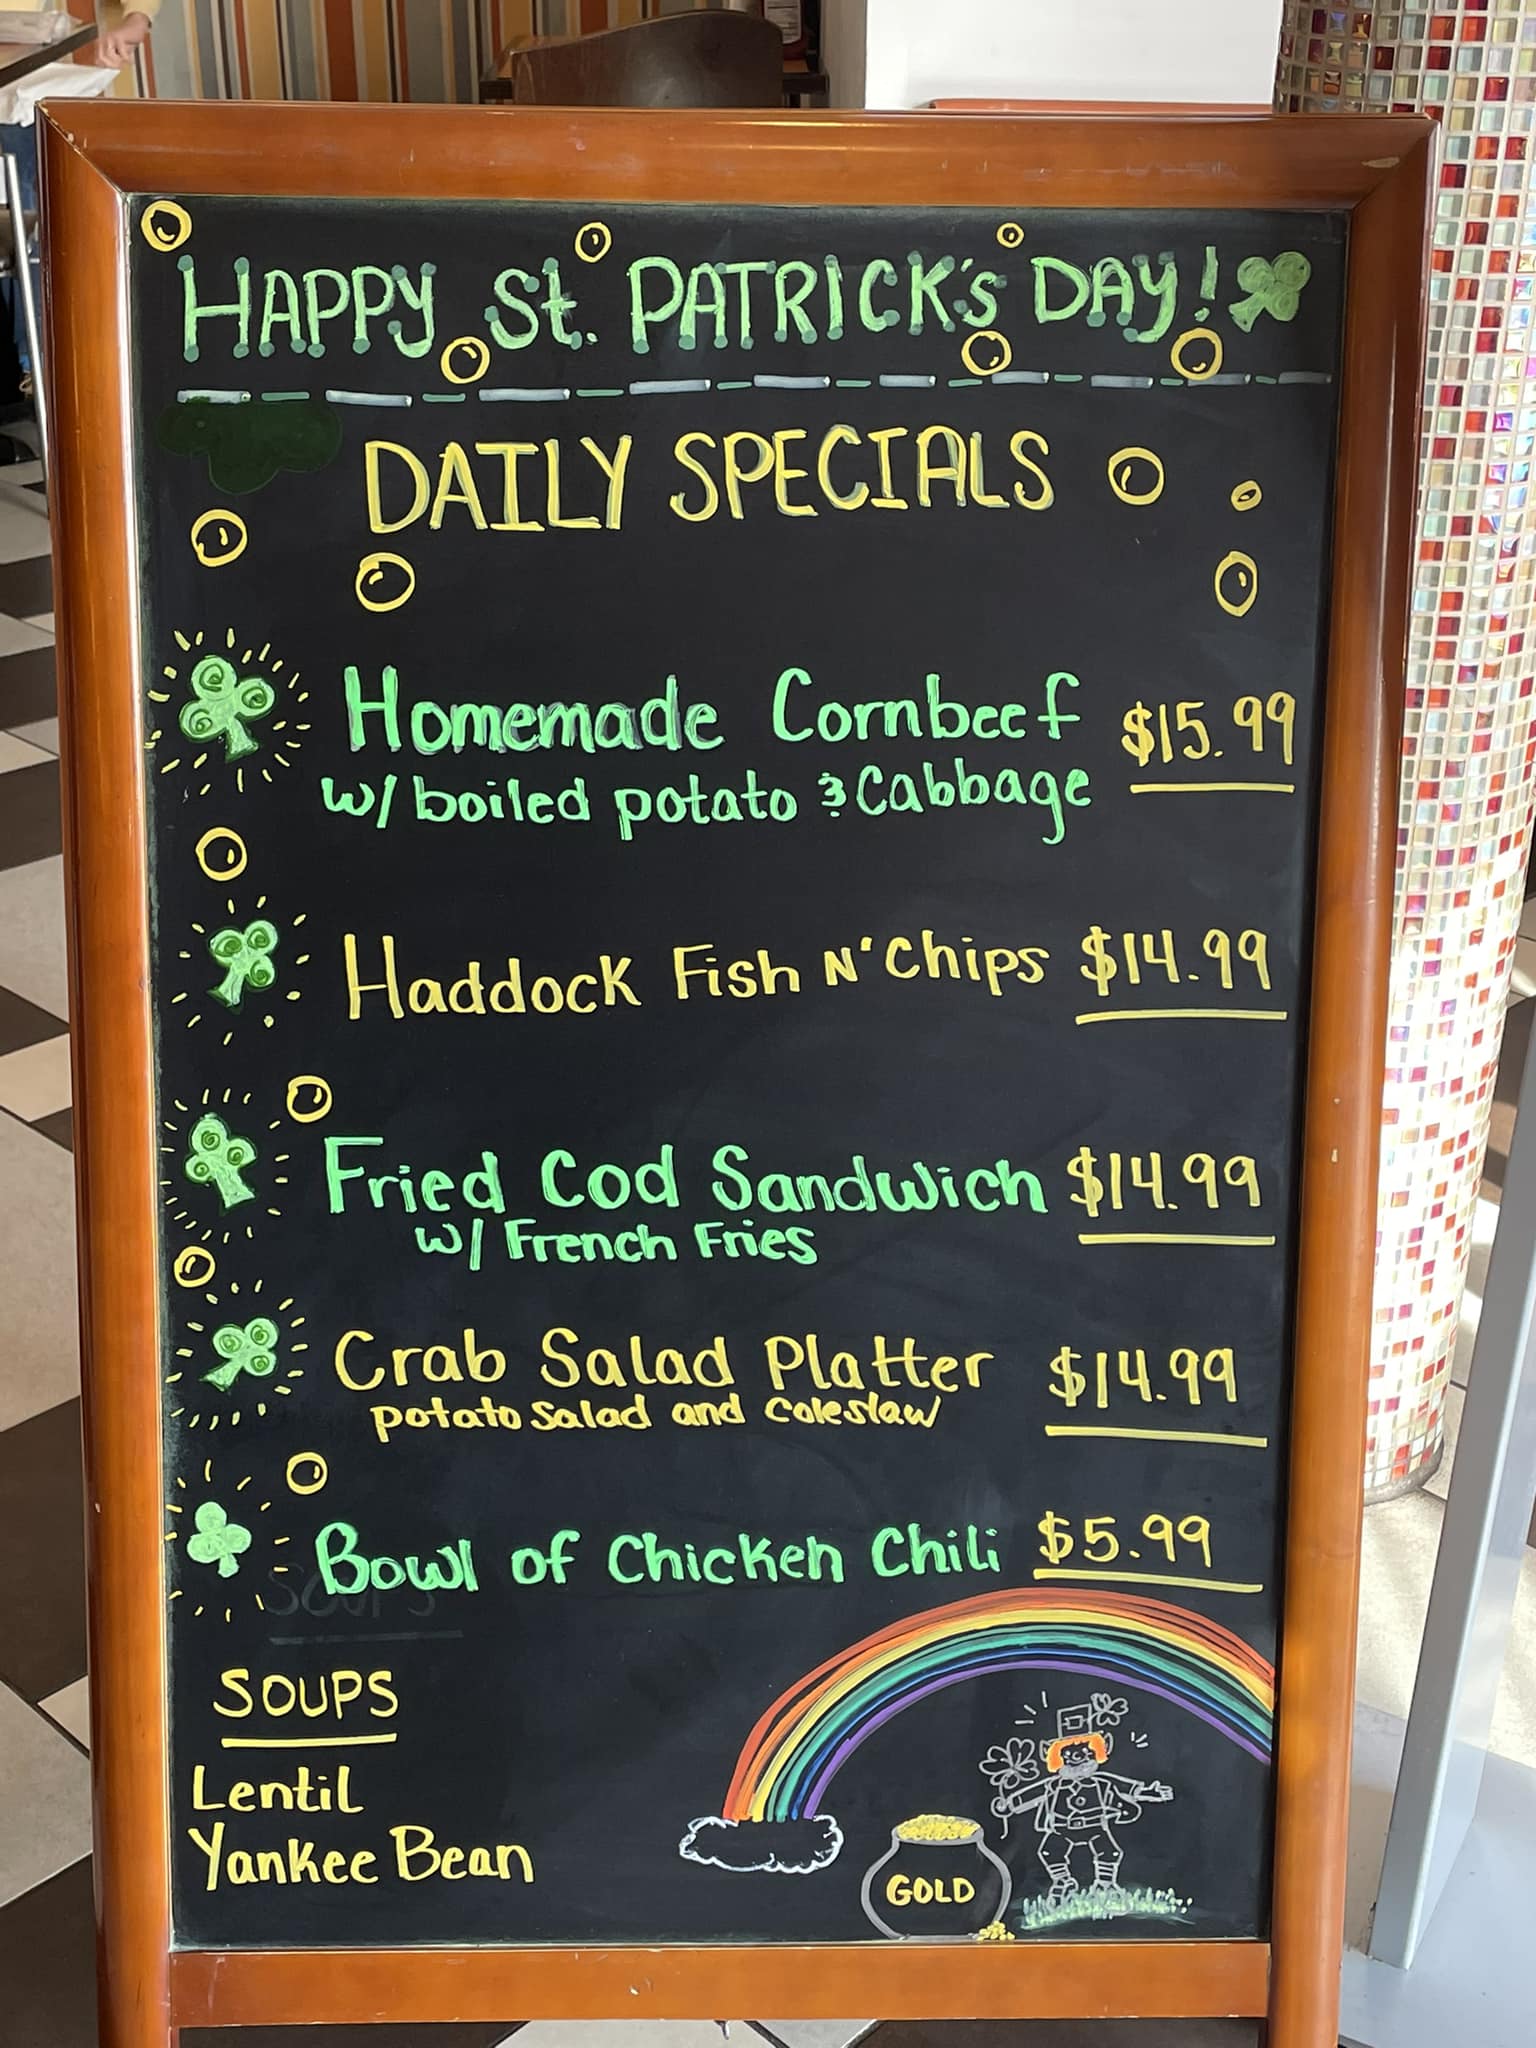 HAPPY St. PATRICK'S DAY!
DAILY SPECIALS
Homemade Cornbeef $15.99
w/ boiled potato & Cabbage
Haddock Fish N' Chips $14.99
Fried Cod Sandwich $14.99
w/ French Fries
Crab Salad Platter $14.99
potato salad and coleslaw
Bowl of Chicken Chili $5.99
SOUPS
SOUPS
Lentil
Yankee Bean
GOLD